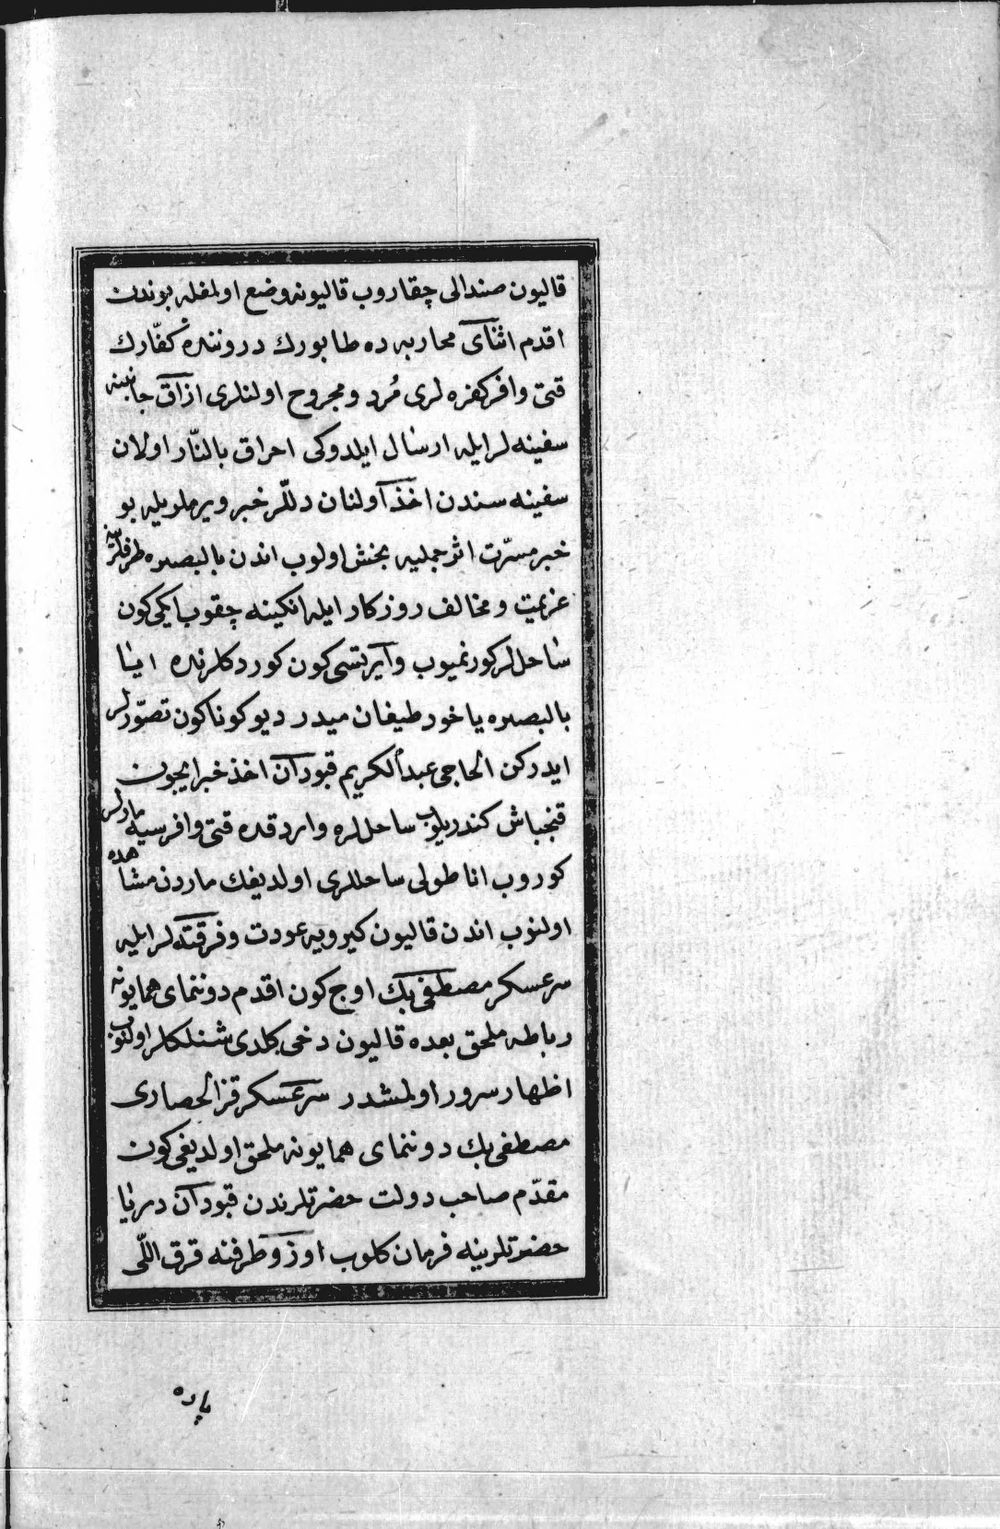 قاليون صندالى چقاروب قاليونه وضع اولمغله بوندن
اقدم اثناى محاربه ده طابورك دروننده كفّارك
قتى وافر كفره لرى مُرد و مجروح اولنلرى ازاق جانبينه
سفينه لر ايله ارسال ايلدوكى احراق بالنّار اولان
سفينه سندن اخذ اولنان دللّر خبر ويرملريله بو
خبر مسرّت اثر جمليه بخش اولوب اندن بالبصره طرفلرينه
عزيمت و مخالف روزكار ايله انكينه چقوب ايكى كون
ساحللر كورنميوب وآيرتسى كون كوردكلرنده ايا
بالبصره ياخود طيغان ميدر ديو كوناكون تصوّرلر
ايدركن الحاجى عبدالكريم قبودان اخذ خبر ايچون
قنجباش كندريلوب ساحللره واردقده قتى وافر سيه مارلر
كوروب اناطولى ساحللرى اولديغك ماردن مشاهده
اولنوب اندن قاليون كيرويه عودت و فرقته لر ايله
سرعسكر مصطفى بك اوچ كون اقدم دوننماى همايونه
رباطه ملحق بعده قاليون دخى كلدى شنلكلر اولنوب
اظهار سرور اولمشدر سرعسكر قزالحصارى
مصطفى بك دوننماى همايونه ملحق اولديغى كون
مقدّم صاحب دولت حضرتلرندن قبودان دريا
حضرتلرينه فرمان كلوب اوزو طرفنه قرق اللّى
پاره